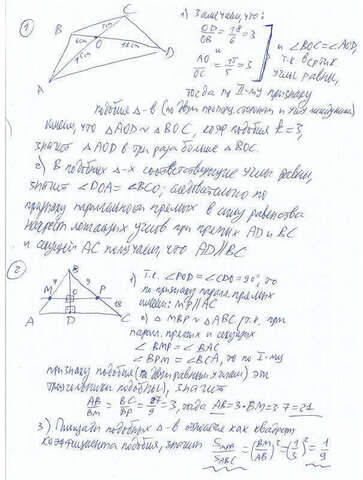 ① 1) Замечаем, что:
OD/OB = 18/6 = 3
и
AO/OC = 15/5 = 3
и ∠BOC = ∠AOD,
т.к. вертик.
углы равны,
B C O A D
6см 5см 18см 15см
тогда по II-му признаку
подобия Δ-в (по двум пропорц. сторонам и углу между ними)
имеем, что ΔAOD ~ ΔBOC, коэф. подобия k = 3,
значит ΔAOD в три раза больше ΔBOC.
2) В подобных Δ-х соответствующие углы равны,
значит ∠DCA = ∠BCO; следовательно по
признаку параллельности прямых в силу равенства
накрест лежащих углов при прямых AD и BC
и секущей AC получаем, что AD||BC
② 1) Т.к. ∠POD = ∠CDO = 90°, то
по признаку паралл. прямых
имеем: MP||AC
B M P O A D C
7 9 18
2) ΔMBP ~ ΔABC (т.к. при
паралл. прямых и секущих
∠BMP = ∠BAC
∠BPM = ∠BCA, то по I-му
признаку подобия (по двум равным углам) эти
треугольники подобны), значит
AB/BM = BC/BP = 27/9 = 3, тогда AB = 3·BM = 3·7 = 21
3) Площади подобных Δ-в относятся как квадрат
коэффициента подобия, значит S MBP/S ABC = (BM/AB)² = (1/3)² = 1/9